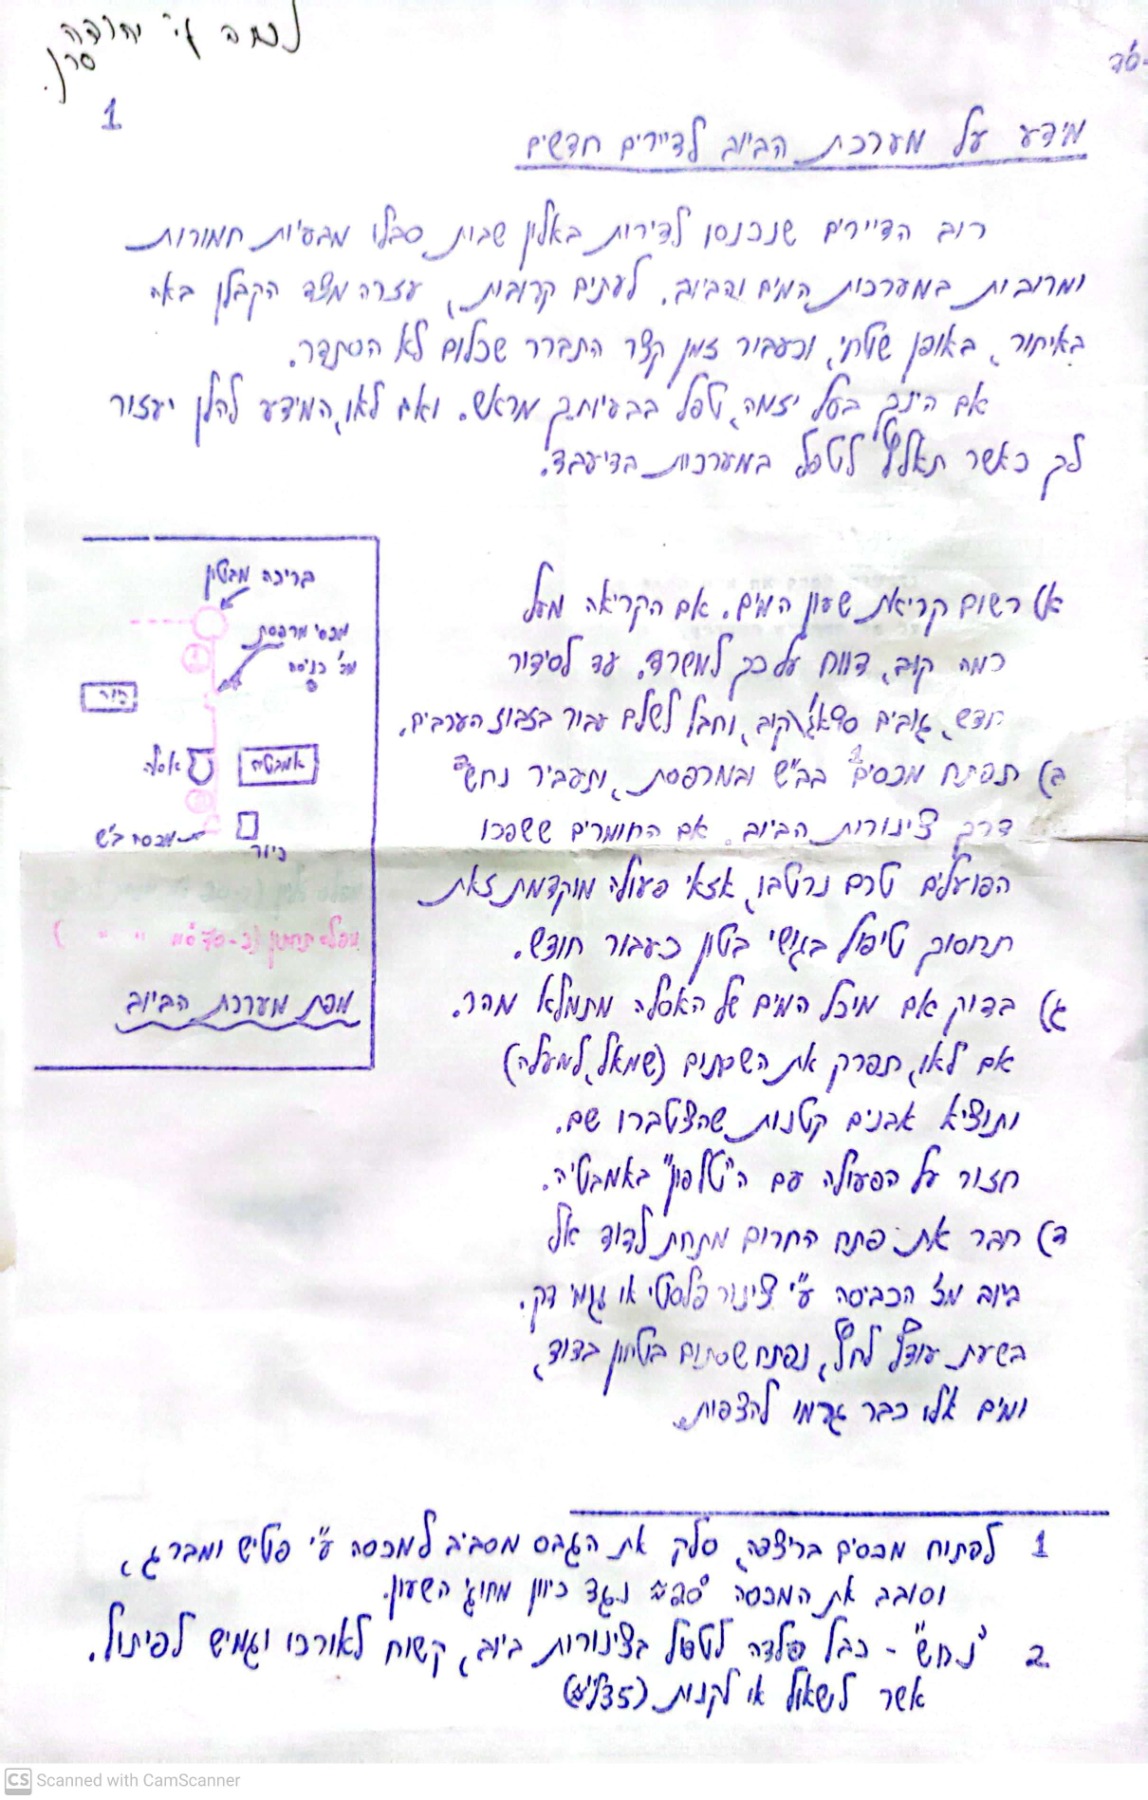 נכתב ע"י יהודה
סרן.
1
מידע על מערכת הביוב לדיירים חדשים
רוב הדיירים שנכנסו לדירות באלון שבות סבלו מבעיות חמורות
ומרובות במערכות המים והביוב. לעתים קרובות, עזרה מצד הקבלן באה
באיחור, באופן שטחי, וכעבור זמן קצר התברר שכלום לא הסתדר.
אם הינך בעל יזמה, טפל בבעיותיך מראש. ואם לאו, המידע להלן יעזור
לך כאשר תאלץ לטפל במערכות בדיעבד.
א) רשום קריאת שעון המים. אם הקריאה מעל
כמה קוב, דווח על כך למשרד. עד לסידור
חדש, גובים קוב, וחבל לשלם עבור בזבוז הערבים.
ב) תפתח מכסים1 בב"ש ובמרפסת, ותעביר נחש
דרך צינורות הביוב. אם החומרים ששפכו
הפועלים טרם נרטבו, אזאי פעולה מוקדמת זאת
תחסוך טיפול בגושי בטון כעבור חודש.
ג) בדוק אם מיכל המים של האסלה מתמלא מהר.
אם לאו, תפרק את השסתום (שמאל, למעלה)
ותוציא אבנים קטנות שהצטברו שם.
חזור על הפעולה עם ה"טלפון" באמבטיה.
ד) חבר את פתח החרום מתחת לדוד אל
ביוב מכ' הכביסה ע"י צינור פלסטי או גומי דק.
בשעת עודף לחץ, נפתח שסתום בטחון בדוד,
ומים אלו כבר גרמו להצפות.
בריכה מבטון
מכסי מרפסת
מכ' כניסה
כיור
אסלה
אמבטיה
מכסה ב"ש
כיור
מפת מערכת הביוב
1 לפתוח מכסים בריצפה, סלק את הגבס מסביב למכסה ע"י פטיש ומברג,
וסובב את המכסה נגד כיוון מחוגי השעון.
2 "נחש" - כבל פלדה לטפל בצינורות ביוב, קשוח לאורכו וגמיש לפיתול.
אשר לשאול או לקנות (35 ל"י)
CS Scanned with CamScanner